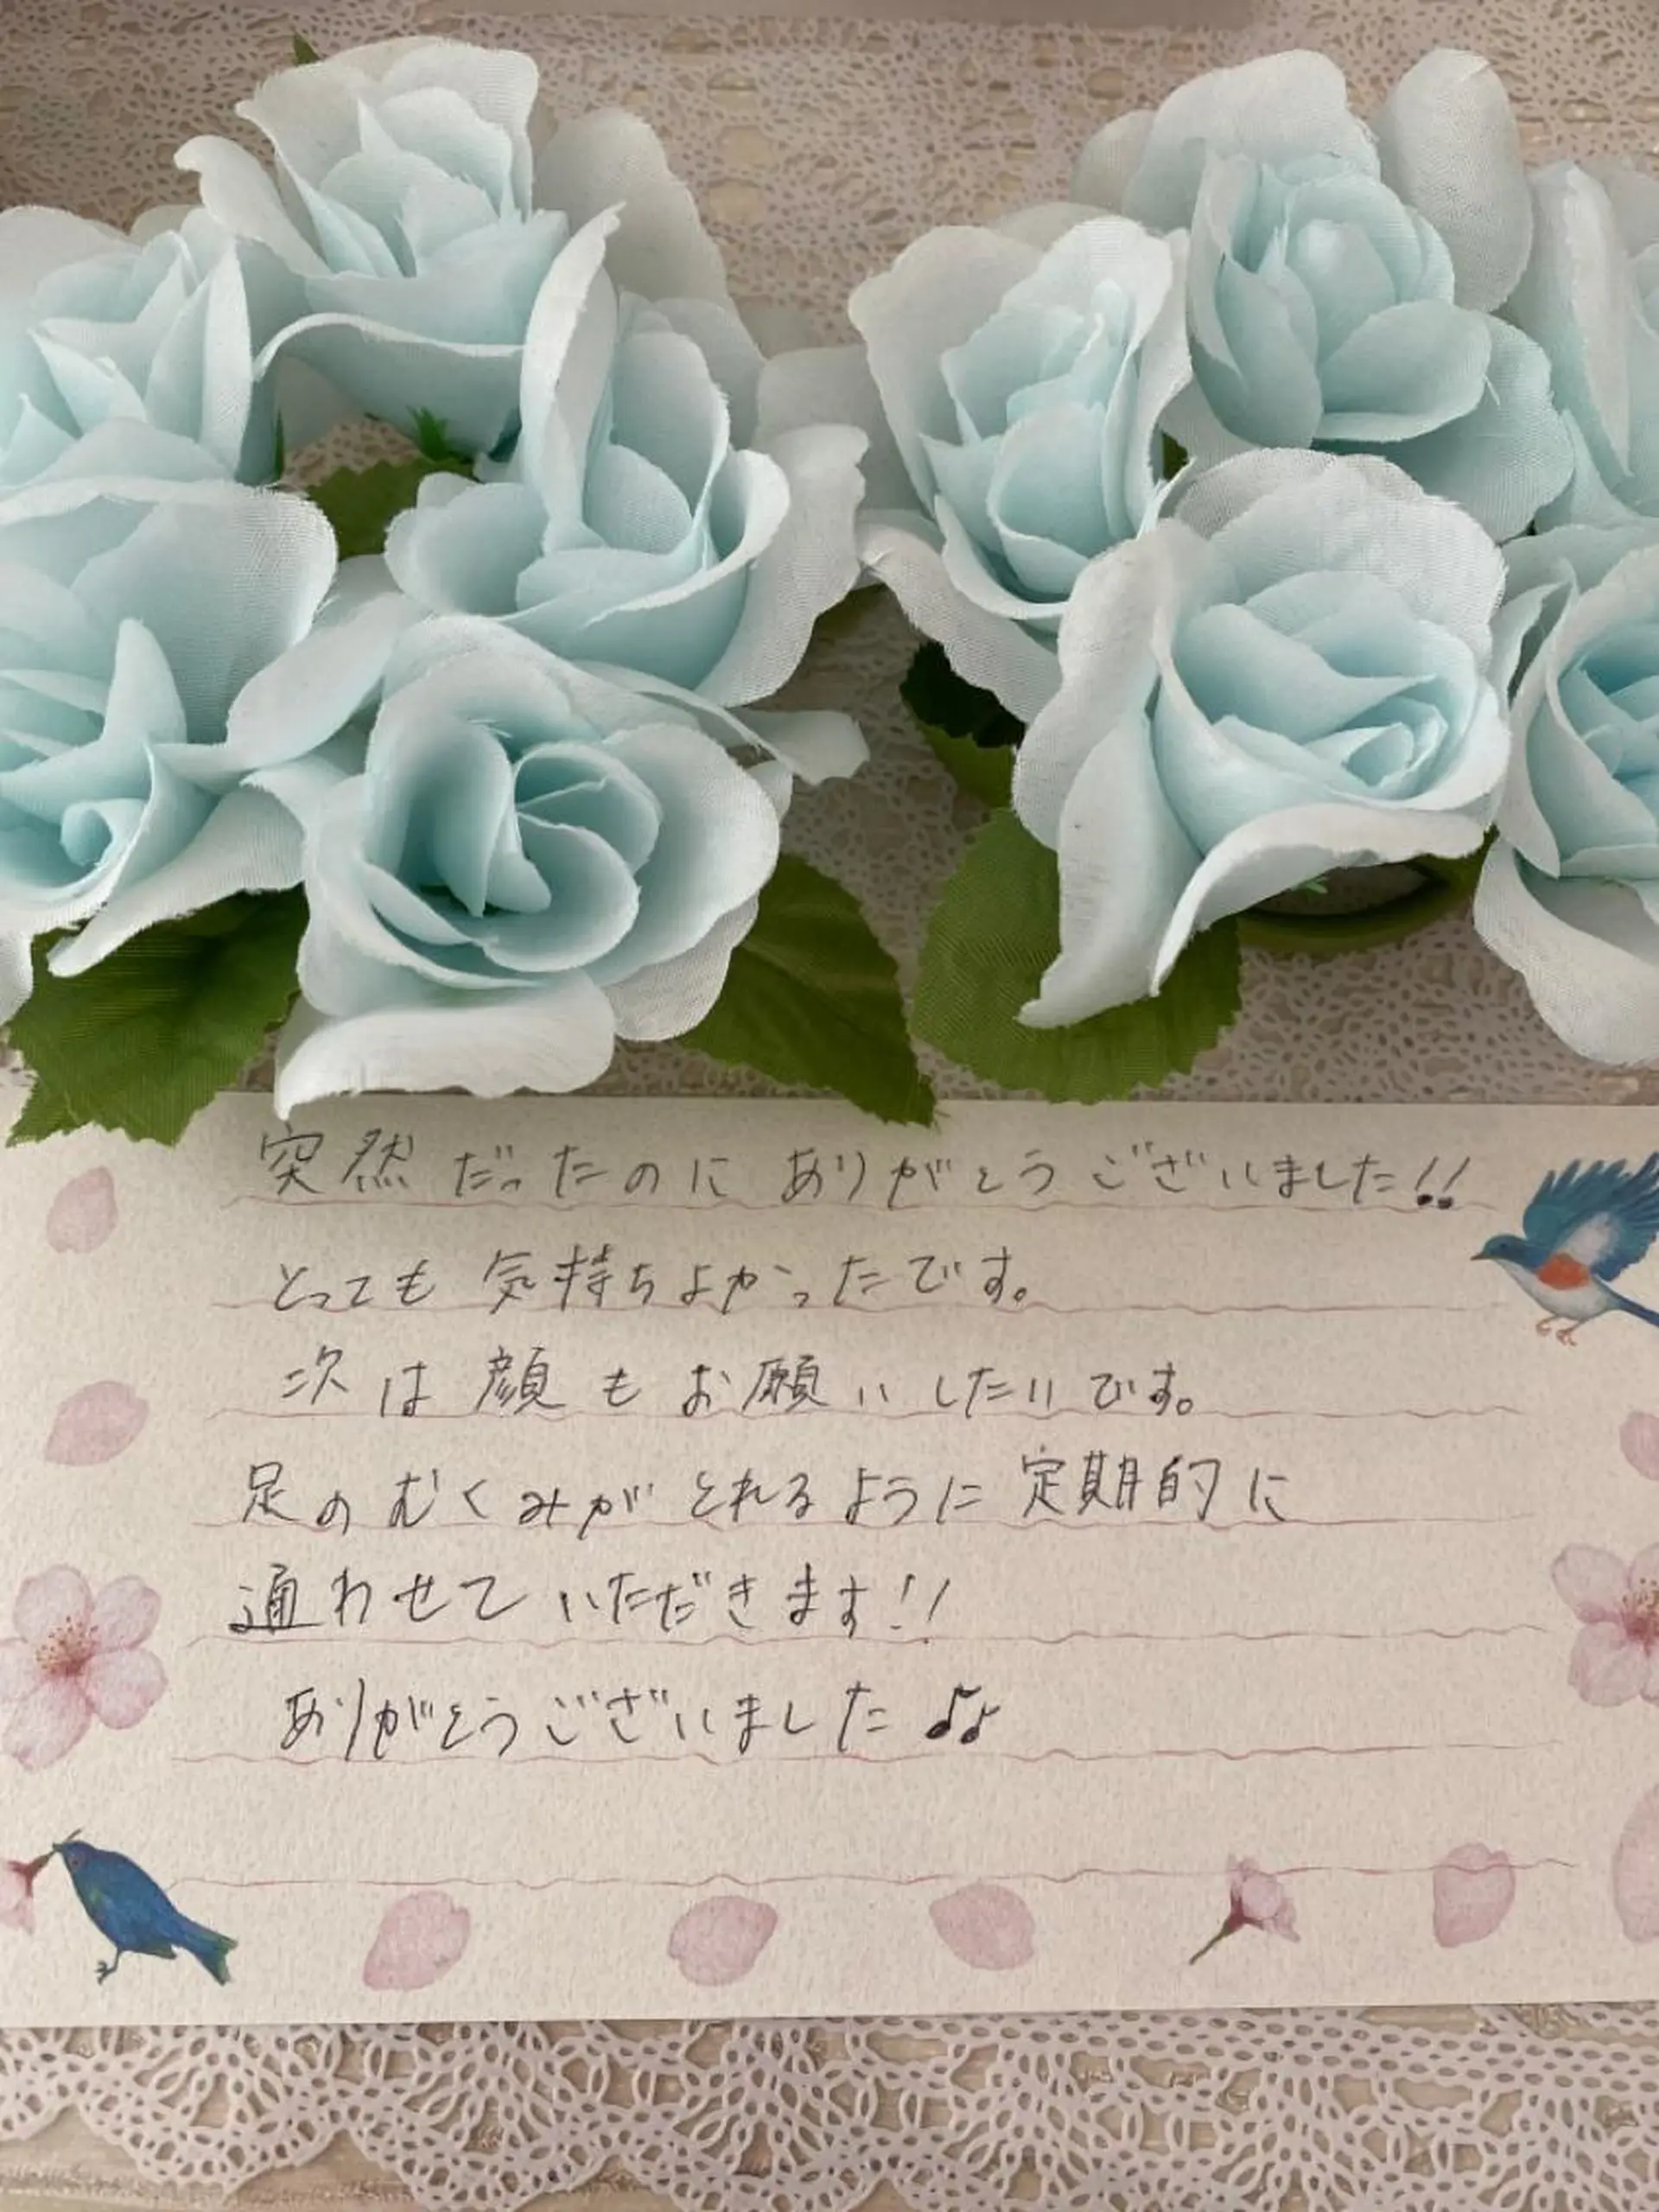 突然だったのにありがとうございました!!
とっても気持ちよかったです。
次は顔もお願いしたいです。
足のむくみがとれるように定期的に
通わせていただきます!!
ありがとうございました♫♪